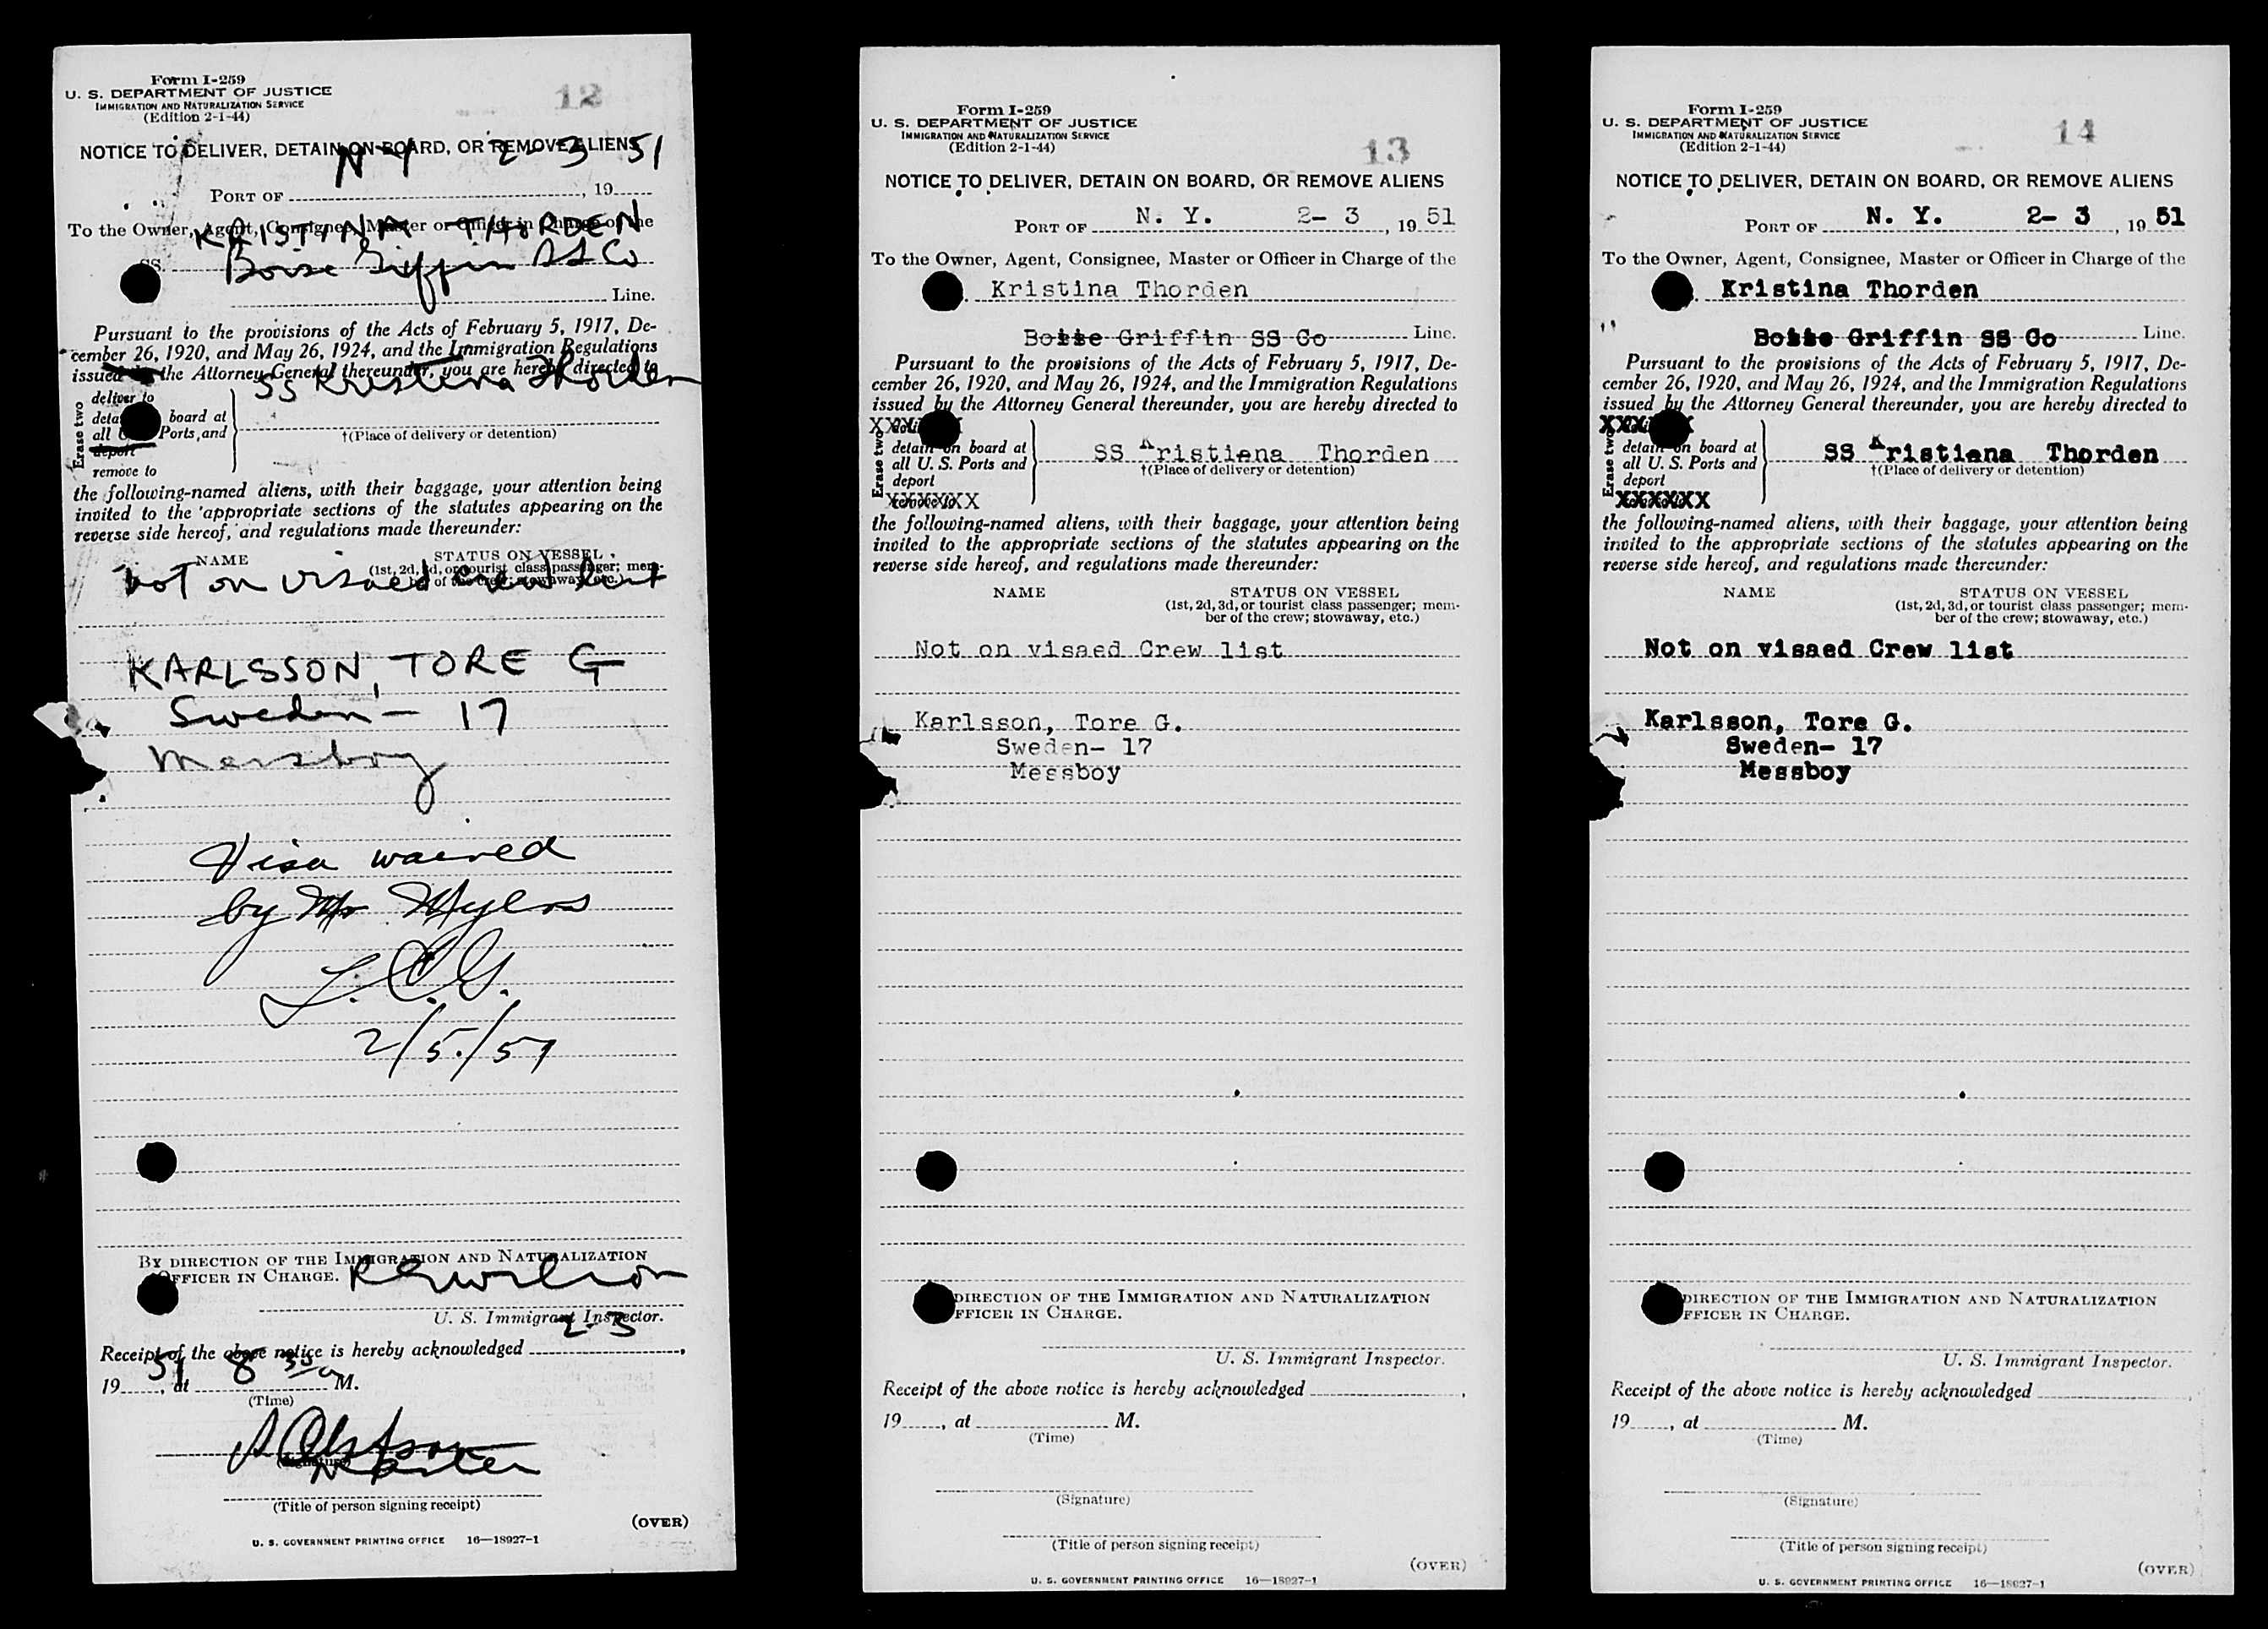 Form I-259
U. S. DEPARTMENT OF JUSTICE
IMMIGRATION AND NATURALIZATION SERVICE
(Edition 2-1-44)
12
NOTICE TO DELIVER, DETAIN ON BOARD, OR REMOVE ALIENS
N Y 2-3 51
PORT OF , 19
To the Owner, Agent, Consignee, Master or Officer in Charge of the
KRISTINA THORDEN
SS.
Griffin SS Co
Line.
Pursuant to the provisions of the Acts of February 5, 1917, De-
cember 26, 1920, and May 26, 1924, and the Immigration Regulations
issued by the Attorney General thereunder, you are hereby directed to
SS Kristina Thorden
Erase two
deliver to
board at
all Ports, and
deport
remove to
†(Place of delivery or detention)
the following-named aliens, with their baggage, your attention being
invited to the appropriate sections of the statutes appearing on the
reverse side hereof, and regulations made thereunder:
NAME STATUS ON VESSEL
(1st, 2d, 3d, or tourist class passenger; mem-
ber of the crew; stowaway, etc.)
Not on visaed crew list
KARLSSON, TORE G
Sweden - 17
Messboy
Visa waived
by Mr Myers
L. C. G.
2/5/51
BY DIRECTION OF THE IMMIGRATION AND NATURALIZATION
OFFICER IN CHARGE.
U. S. Immigrant Inspector.
2-3
Receipt of the above notice is hereby acknowledged ,
19 51, at 8 30 a M.
(Time)
(Signature)
Master
(Title of person signing receipt)
(OVER)
U. S. GOVERNMENT PRINTING OFFICE 16—18927-1
Form I-259
U. S. DEPARTMENT OF JUSTICE
IMMIGRATION AND NATURALIZATION SERVICE
(Edition 2-1-44)
13
NOTICE TO DELIVER, DETAIN ON BOARD, OR REMOVE ALIENS
PORT OF N. Y. 2- 3 , 19 51
To the Owner, Agent, Consignee, Master or Officer in Charge of the
Kristina Thorden
Griffin SS Co Line.
Pursuant to the provisions of the Acts of February 5, 1917, De-
cember 26, 1920, and May 26, 1924, and the Immigration Regulations
issued by the Attorney General thereunder, you are hereby directed to
Erase two
detain on board at
all U. S. Ports and
deport
XXXXXX
SS Kristiana Thorden
†(Place of delivery or detention)
the following-named aliens, with their baggage, your attention being
invited to the appropriate sections of the statutes appearing on the
reverse side hereof, and regulations made thereunder:
NAME STATUS ON VESSEL
(1st, 2d, 3d, or tourist class passenger; mem-
ber of the crew; stowaway, etc.)
Not on visaed Crew list
Karlsson, Tore G.
Sweden- 17
Messboy
DIRECTION OF THE IMMIGRATION AND NATURALIZATION
FFICER IN CHARGE.
U. S. Immigrant Inspector.
Receipt of the above notice is hereby acknowledged ,
19 , at M.
(Time)
(Signature)
(Title of person signing receipt)
(OVER)
U. S. GOVERNMENT PRINTING OFFICE 16—18927-1
Form I-259
U. S. DEPARTMENT OF JUSTICE
IMMIGRATION AND NATURALIZATION SERVICE
(Edition 2-1-44)
14
NOTICE TO DELIVER, DETAIN ON BOARD, OR REMOVE ALIENS
PORT OF N. Y. 2- 3 , 19 51
To the Owner, Agent, Consignee, Master or Officer in Charge of the
Kristina Thorden
Griffin SS Co Line.
Pursuant to the provisions of the Acts of February 5, 1917, De-
cember 26, 1920, and May 26, 1924, and the Immigration Regulations
issued by the Attorney General thereunder, you are hereby directed to
Erase two
detain on board at
all U. S. Ports and
deport
XXXXXX
SS Kristiana Thorden
†(Place of delivery or detention)
the following-named aliens, with their baggage, your attention being
invited to the appropriate sections of the statutes appearing on the
reverse side hereof, and regulations made thereunder:
NAME STATUS ON VESSEL
(1st, 2d, 3d, or tourist class passenger; mem-
ber of the crew; stowaway, etc.)
Not on visaed Crew list
Karlsson, Tore G.
Sweden- 17
Messboy
DIRECTION OF THE IMMIGRATION AND NATURALIZATION
FFICER IN CHARGE.
U. S. Immigrant Inspector.
Receipt of the above notice is hereby acknowledged ,
19 , at M.
(Time)
(Signature)
(Title of person signing receipt)
(OVER)
U. S. GOVERNMENT PRINTING OFFICE 16—18927-1